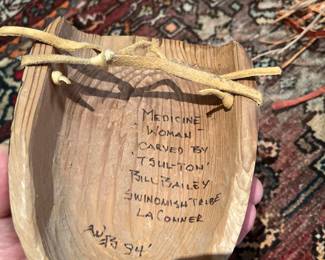 "MEDICINE
WOMAN"
CARVED BY
'TSUL-TON'
BILL BAILEY
SWINOMISH TRIBE
LA CONNER
94'